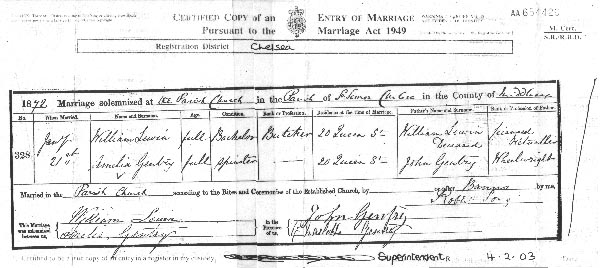 CERTIFIED COPY of an ENTRY OF MARRIAGE
Pursuant to the Marriage Act 1949
AA 654426
M. Cert.
S.R./R.B.D.
Registration District Chelsea
1878. Marriage solemnized at the Parish Church in the Parish of St Lukes Chelsea in the County of Middlesex
No. When Married. Name and Surname. Age. Condition. Rank or Profession. Residence at the time of Marriage. Father's Name and Surname. Rank or Profession of Father.
328 Jany 21st William Lewin full Bachelor Butcher 20 Queen St William Lewin Deceased Licensed Victualler
Amelia Gentry full Spinster 20 Queen St John Gentry Wheelwright
Married in the Parish Church according to the Rites and Ceremonies of the Established Church, by or after Banns by me,
This Marriage was solemnized between us, William Lewin Amelia Gentry in the Presence of us, John Gentry Charlotte Gentry
Certified to be a true copy of an entry in a register in my custody. Superintendent R 4.2.03